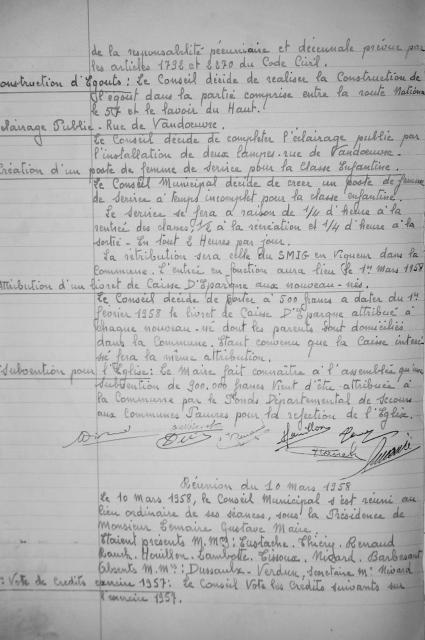 de la responsabilité pécuniaire et décennale prévue par
les articles 1792 et 2270 du Code Civil.
onstruction d'Egouts: Le Conseil décide de réaliser la Construction de
l'égout dans la partie comprise entre la route Nationa
le 57 et le lavoir du Haut.
clairage Public - Rue de Vandoeuvre.
Le Conseil décide de compléter l'éclairage public par
l'installation de deux lampes rue de Vandoeuvre.
réation d'un poste de femme de service pour la classe Enfantine.
Le Conseil Municipal décide de créer un poste de femme
de service à temps incomplet pour la classe enfantine.
Le service se fera à raison de 1/4 d'heure à la
rentrée des classes, 1/2 à la récréation et 1/4 d'heure à la
sortie - En tout 2 Heures par jour.
La rétribution sera celle du SMIG en Vigueur dans la
Commune. L'entrée en fonction aura lieu le 1er mars 1958
Attribution d'un livret de Caisse D'Epargne aux nouveau-nés.
Le Conseil décide de porter à 500 francs à dater du 1er
février 1958 le livret de Caisse D'Epargne attribué à
chaque nouveau-né dont les parents sont domiciliés
dans la Commune. Etant convenu que la Caisse
fera la même attribution.
Subvention pour l'Eglise: Le Maire fait connaître à l'assemblée qu'une
subvention de 900.000 francs vient d'être attribuée à
la Commune par le Fonds Départemental de secours
aux Communes Pauvres pour la réfection de l'Eglise.
Réunion du 10 mars 1958
Le 10 Mars 1958, le Conseil Municipal s'est réuni au
lieu ordinaire de ses séances, sous la Présidence de
Monsieur Lemaire Gustave Maire.
Etaient présents M.Mrs: Eustache. Thiéry. Renaud
Houillon. Nivard.
Absents M.Mrs: Dussaulx - Verdun, Secrétaire Mr Nivard
Vote de Crédits exercice 1957: Le Conseil Vote les Crédits suivants sur
l'exercice 1957.